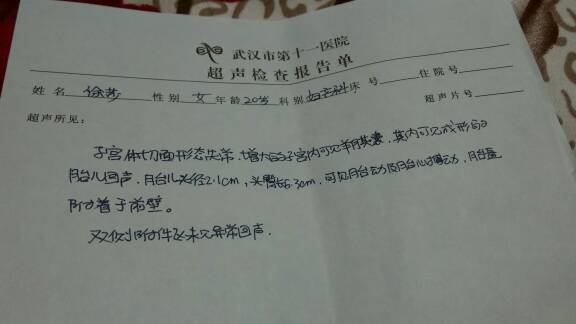 武汉市第十一医院
超声检查报告单
姓名 徐莎 性别 女 年龄 20岁 科别 妇产科 床号 住院号
超声所见： 超声片号
子宫体切面形态失常，增大的子宫内可见羊膜囊，其内可见成形的
胎儿回声，胎儿头径2.1cm，头臀长6.3cm，可见胎动及胎心搏动，胎盘
附着于前壁。
双侧附件区未见异常回声.